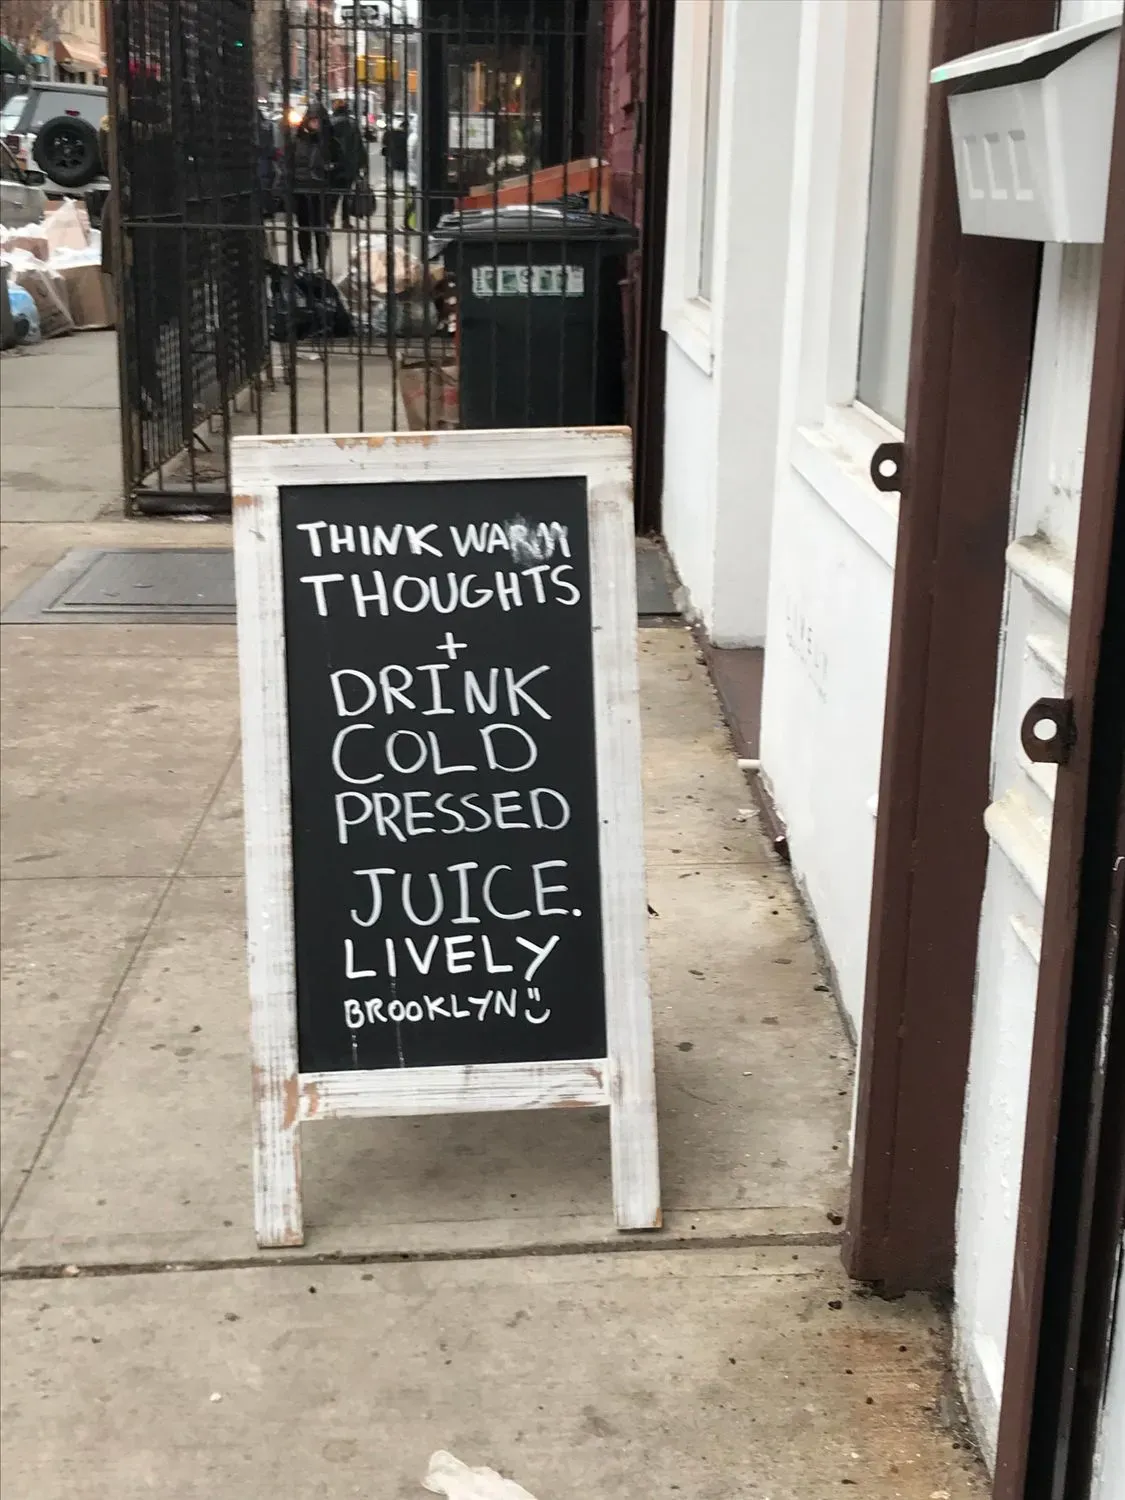 THINK WARM
THOUGHTS
+
DRINK
COLD
PRESSED
JUICE.
LIVELY
BROOKLYN